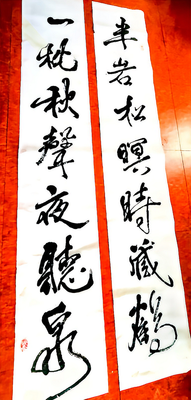 半岩松暝時藏鶴
一枕秋聲夜聽泉